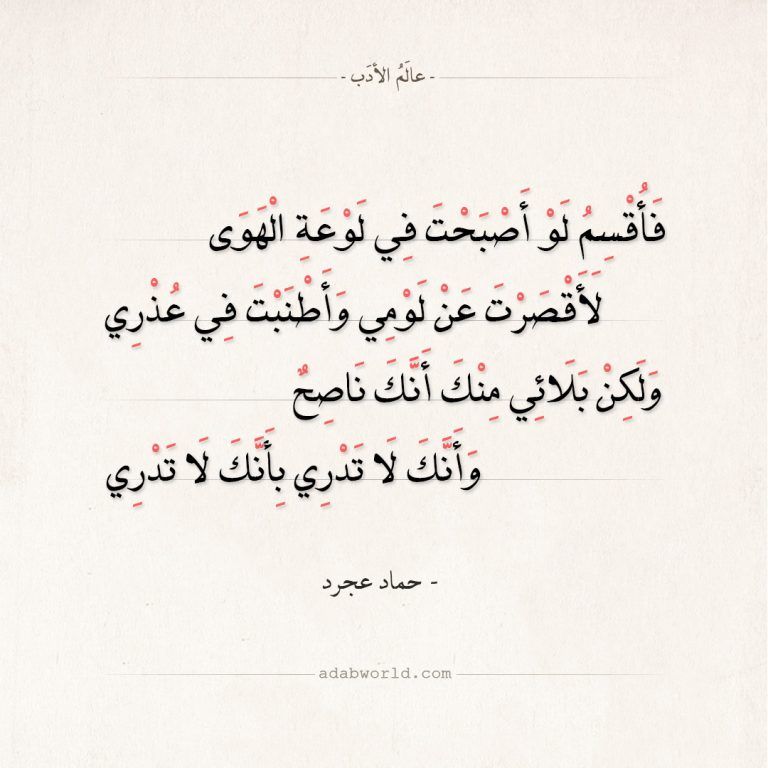 - عالَمُ الأدَب -
فَأُقْسِمُ لَوْ أَصْبَحْتَ فِي لَوْعَةِ الْهَوَى
لَأَقْصَرْتَ عَنْ لَوْمِي وَأَطْنَبْتَ فِي عُذْرِي
وَلَكِنْ بَلَائِي مِنْكَ أَنَّكَ نَاصِحٌ
وَأَنَّكَ لَا تَدْرِي بِأَنَّكَ لَا تَدْرِي
- حماد عجرد
adabworld.com